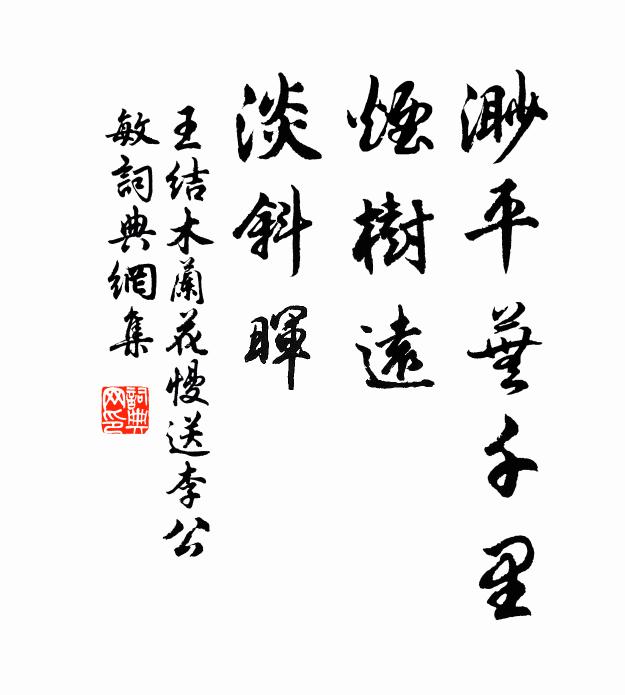 渺平蕪千里
煙樹遠
淡斜暉
王結木蘭花慢送李公
敏詞典網集
詞典
网印